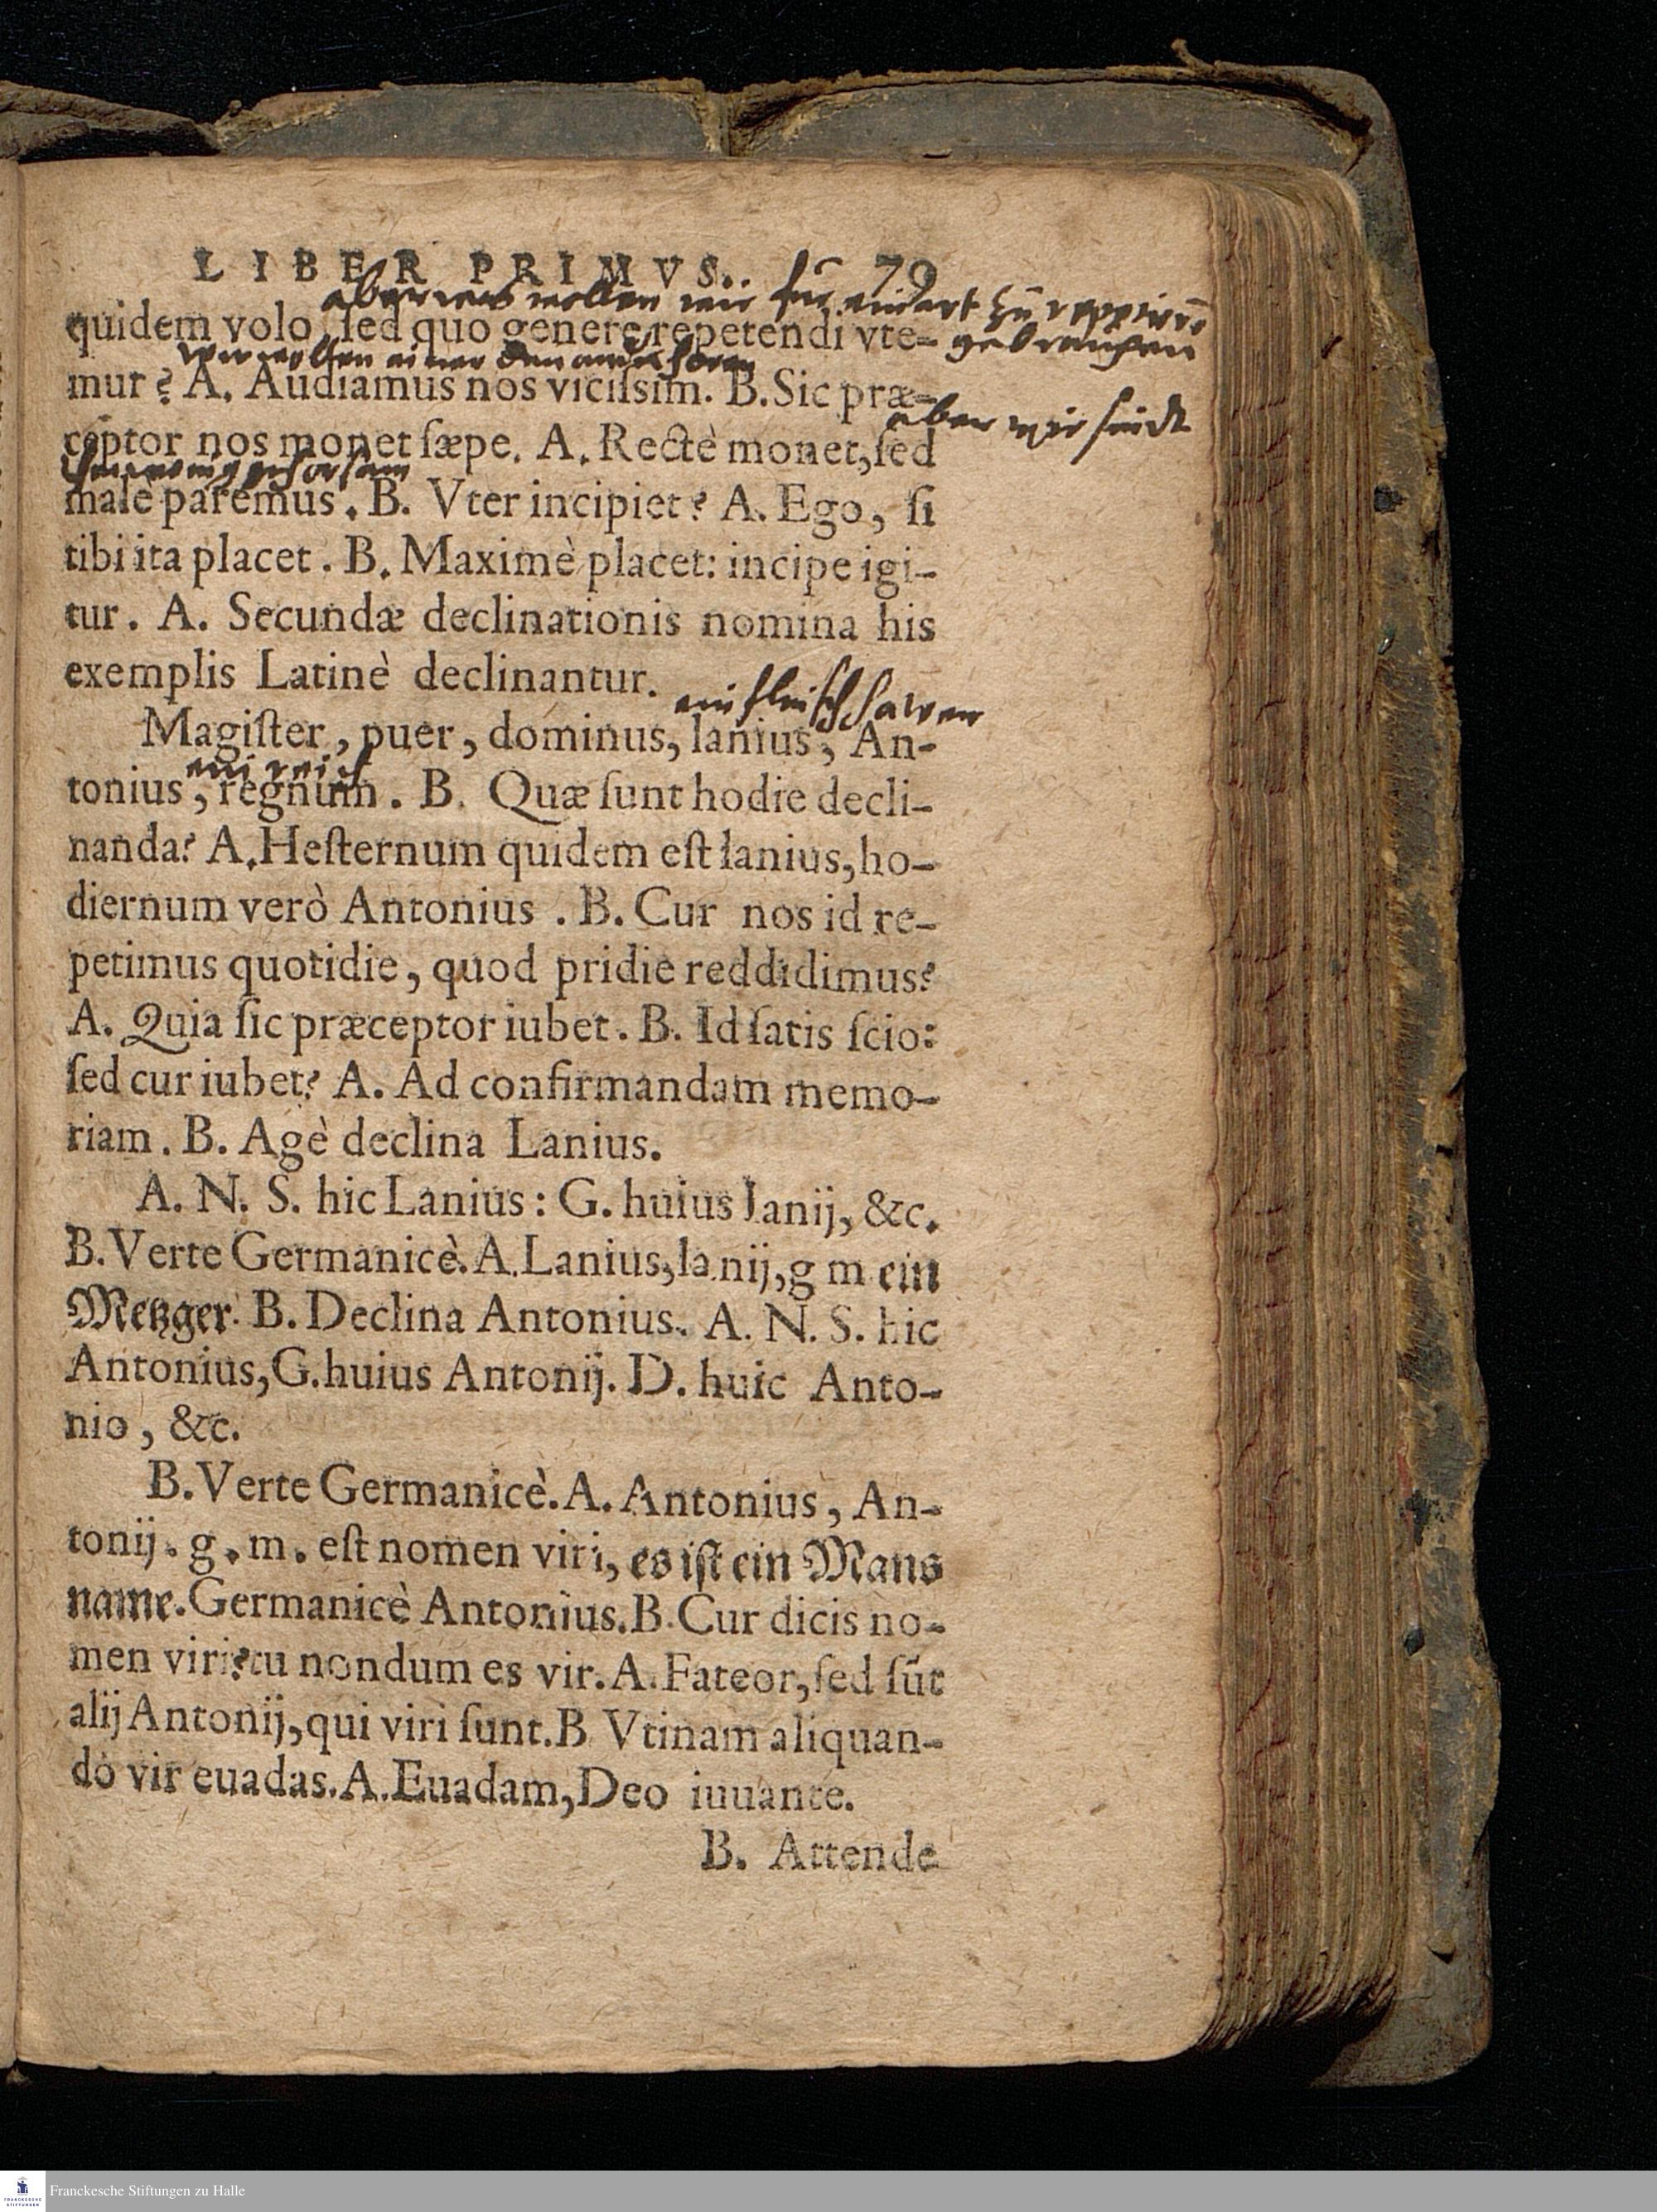 LIBER PRIMVS. 79
aber was wollen wir für ein art zu
quidem volo, ſed quo genere repetendi vte- gebrauchen
wir wollen einer den andern hören
mur? A. Audiamus nos viciſsim. B. Sic præ-
aber wir seindt
ceptor nos monet ſæpe. A. Rectè monet, ſed
gehorsam
male paremus. B. Vter incipiet? A. Ego, ſi
tibi ita placet. B. Maximè placet: incipe igi-
tur. A. Secundæ declinationis nomina his
exemplis Latinè declinantur.
ein fleischhawer
Magiſter, puer, dominus, lanius, An-
ein reich
tonius, regnum. B. Quæ ſunt hodie decli-
nanda? A. Heſternum quidem eſt lanius, ho-
diernum verò Antonius. B. Cur nos id re-
petimus quotidie, quod pridie reddidimus?
A. Quia ſic præceptor iubet. B. Id ſatis ſcio:
ſed cur iubet? A. Ad confirmandam memo-
riam. B. Agè declina Lanius.
A. N. S. hic Lanius: G. huius lanij, &c.
B. Verte Germanicè. A. Lanius, lanij, g m ein
Metzger. B. Declina Antonius. A. N. S. hic
Antonius, G. huius Antonij. D. huic Anto-
nio, &c.
B. Verte Germanicè. A. Antonius, An-
tonij. g. m. eſt nomen viri, es iſt ein Mans
name. Germanicè Antonius. B. Cur dicis no-
men viri? tu nondum es vir. A. Fateor, ſed ſūt
alij Antonij, qui viri ſunt. B Vtinam aliquan-
do vir euadas. A. Euadam, Deo iuuante.
B. Attende
FRANCKESCHE STIFTUNGEN
Franckesche Stiftungen zu Halle